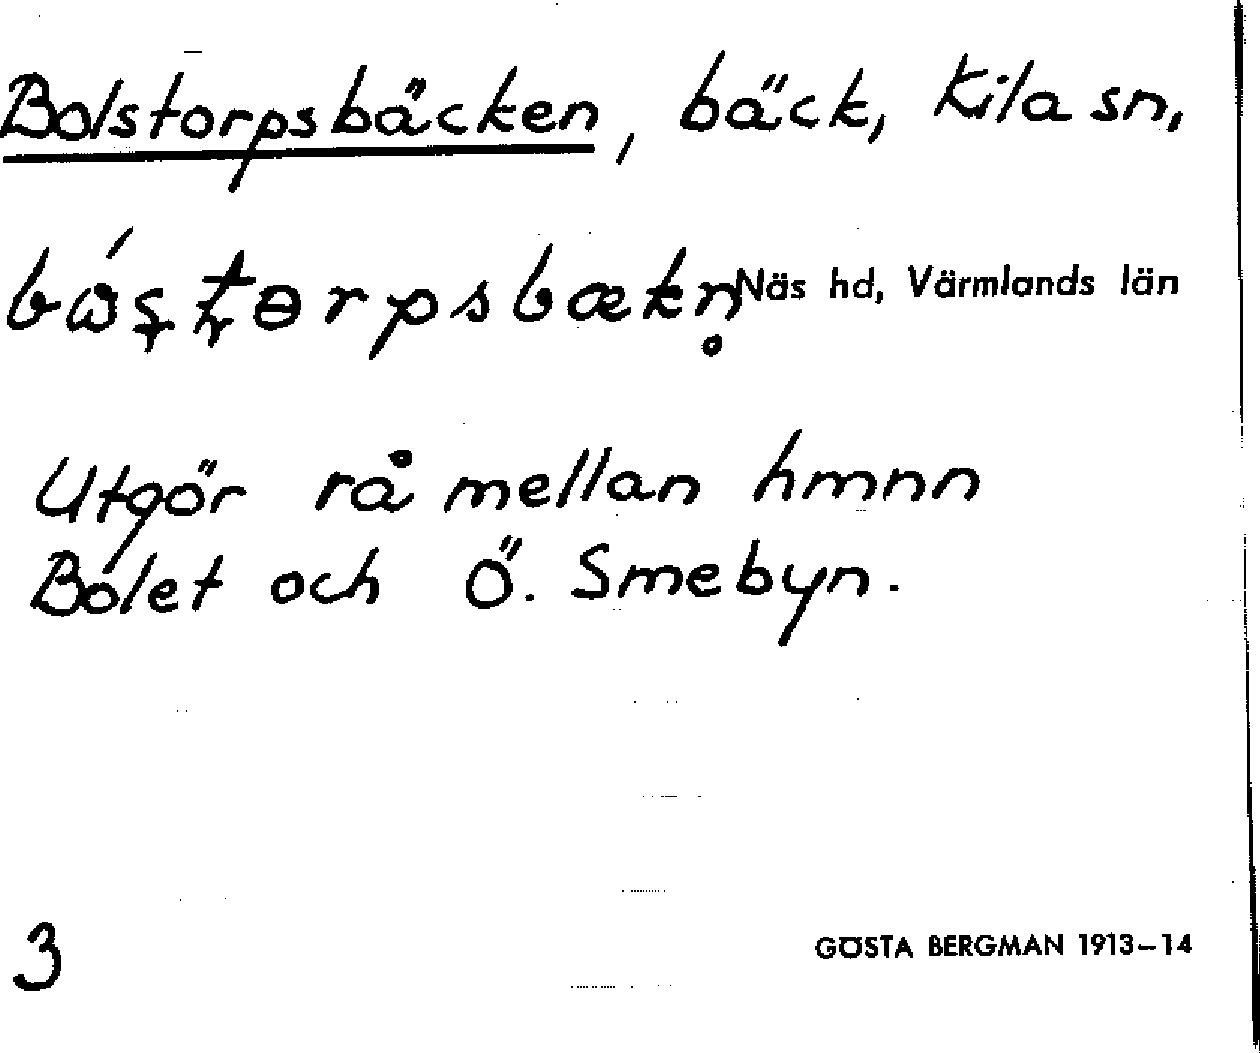 Bolstorpsbäcken, bäck, Kila sn,
Näs hd, Värmlands län
Utgör rå mellan hmnn
Bolet och Ö. Smebyn.
3
GÖSTA BERGMAN 1913–14